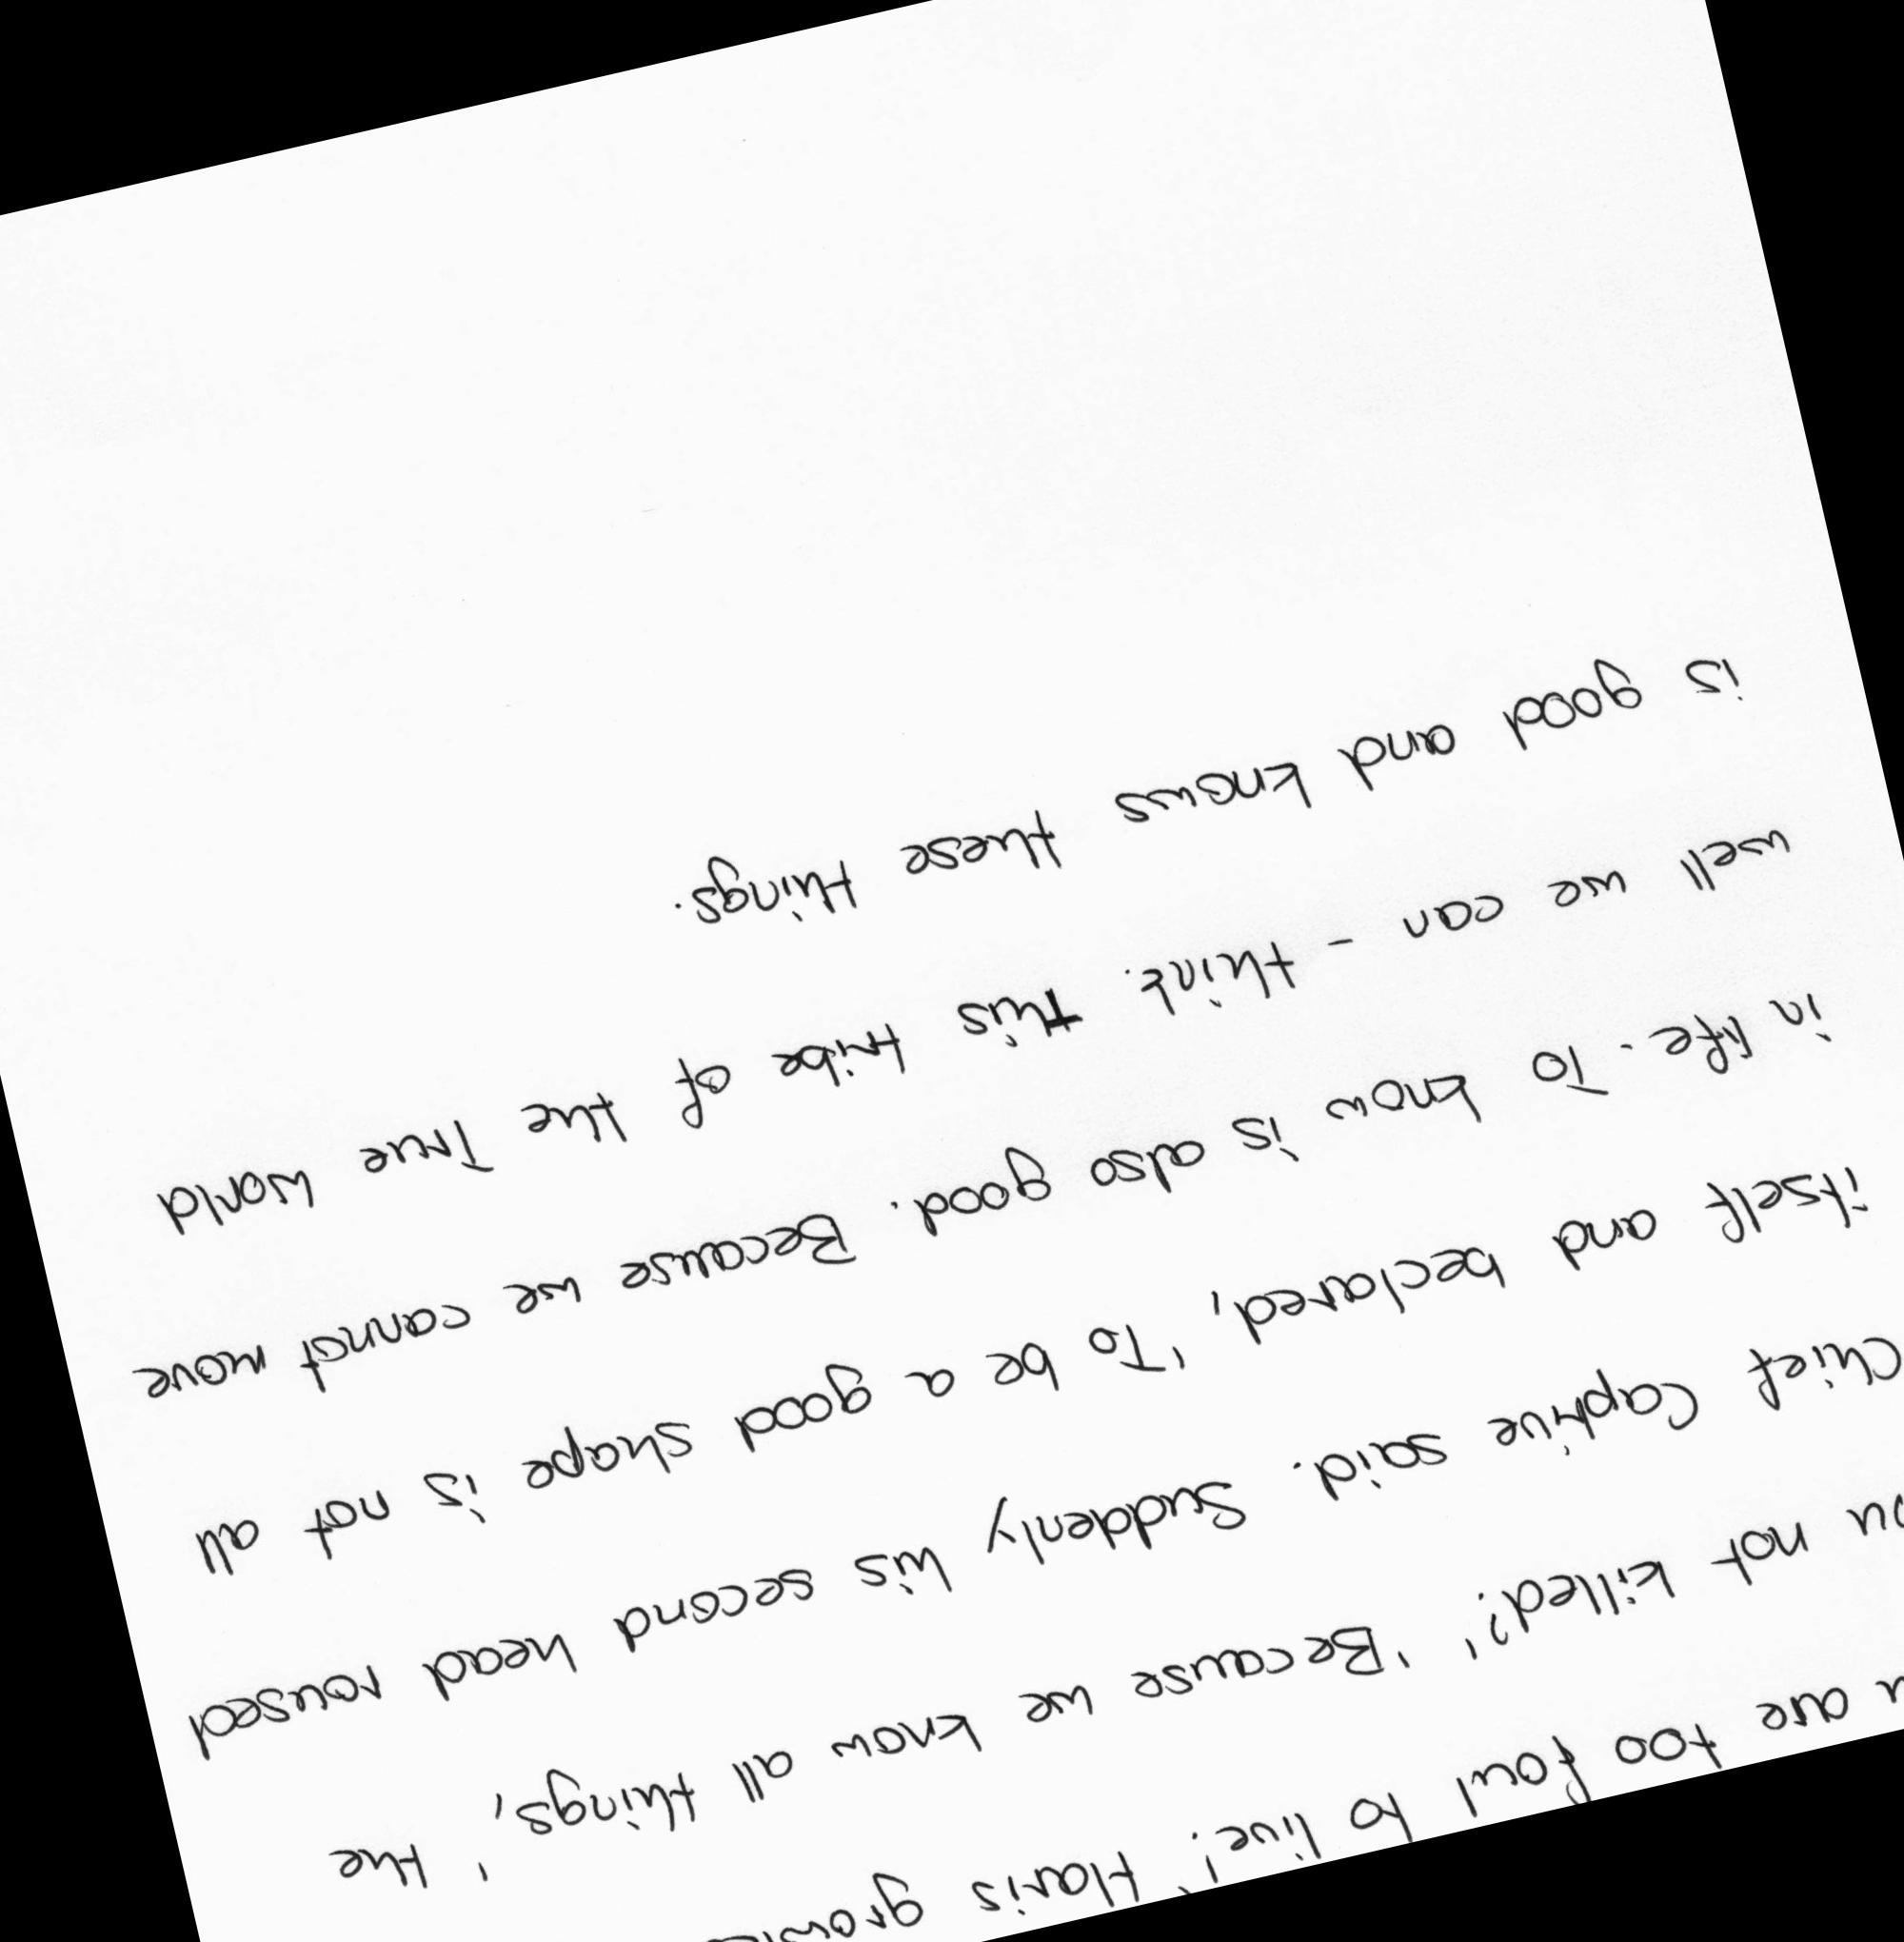 are too foul to live', Haris
not killed?' 'Because we know all things,' the
Chief Captive said. Suddenly his second head roused
itself and beclared, 'To be a good shape is not all
in life. To know is also good. Because we cannot move
well we can - think. This tribe of the True World
is good and knows these things.